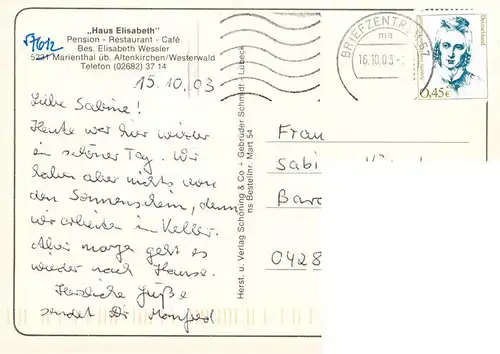 „Haus Elisabeth"
Pension - Restaurant - Café
Bes. Elisabeth Wessler
5231 Marienthal üb. Altenkirchen/Westerwald
Telefon (02682) 37 14
15.10.03
Liebe Sabine!
Heute war hier wieder
ein schöner Tag. Wir
haben aber nichts von
den Sonnenschein, denn
wir arbeiten im Keller.
Aber morgen geht es
wieder nach Hause.
Herzliche Grüße
sendet Dir Manfred
Herst. u. Verlag Schöning & Co + Gebrüder Schmidt - Lübeck
ns Bestellnr. Mart 54
BRIEFZENTRUM 57
ma
16.10.03
Deutschland
0,45€
Frau
Sabi
Bar
0428